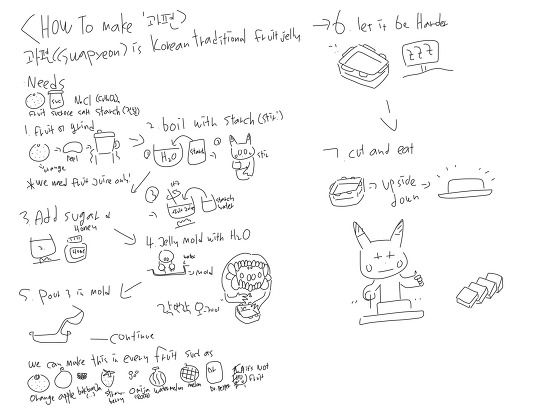 <How To make '과편'>
과편(Gwapyeon) is Korean traditional fruit jelly
Needs
suc
NaCl
Fruit sucrose salt starch
1. Fruit
grind
orange
peel
* We need fruit juice only!
2. boil with starch (stir)
① H2O
starch
②
stir
③
starch
water
3. Add sugar &
Honey
4. Jelly mold with H2O
water
mold
5. Pour 3 in mold
continue
6 let it be Harder
ZZZ
7 cut and eat
upside
down
we can make this in every fruit such as
orange apple
straw-
berry
watermelon
melon
Dr. Pepper
It's Not
fruit